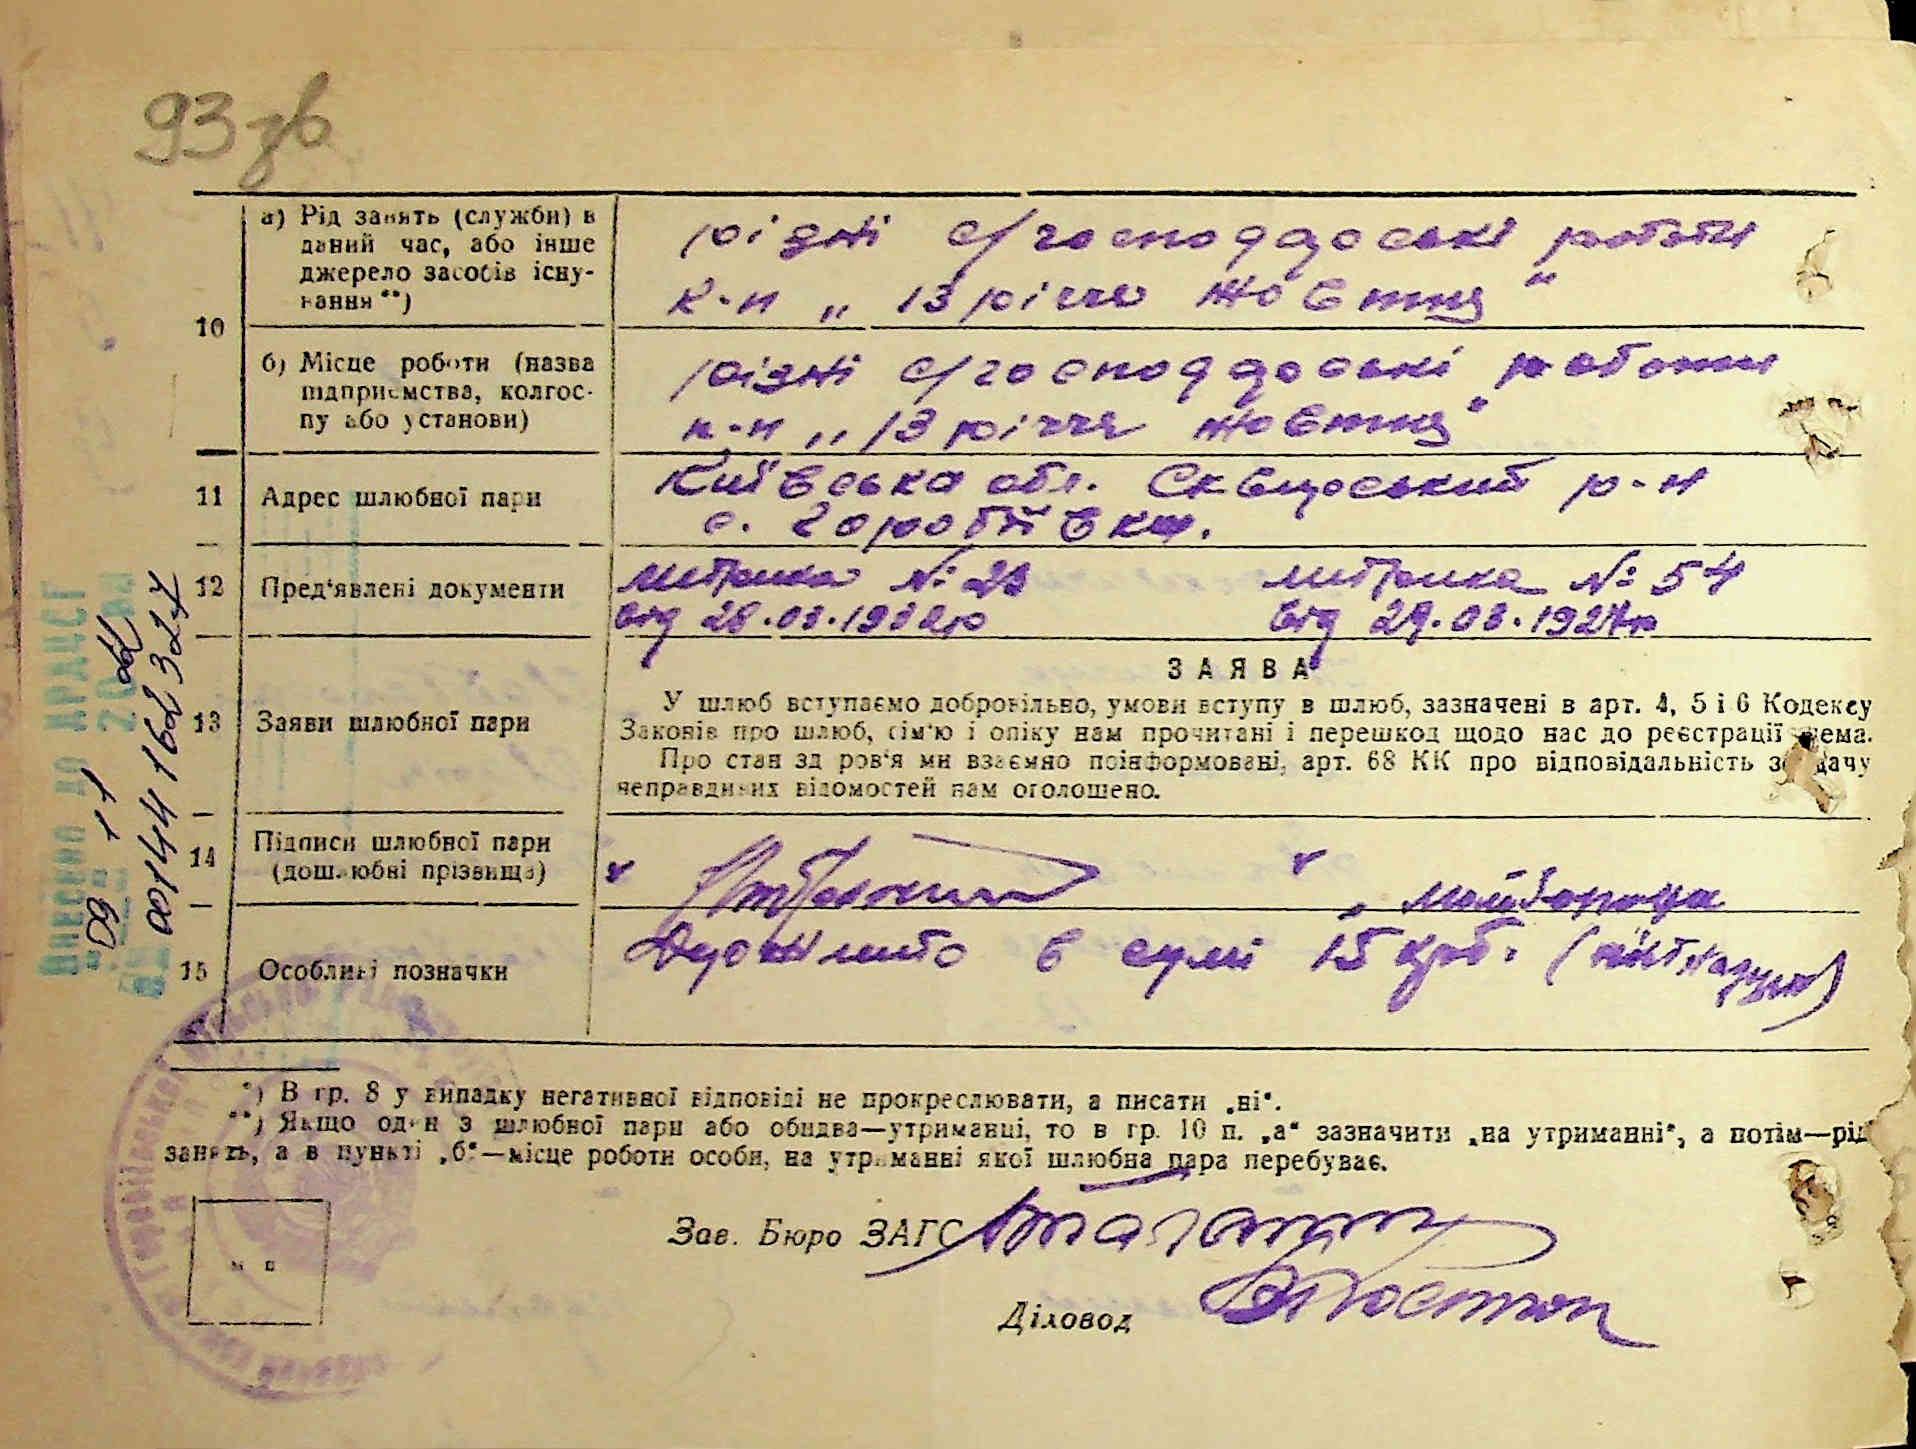 93 зв
а) Рід занять (служби) в даний час, або інше джерело засобів існування **)
різні с/господарські роботи
к-п „13 річчя Жовтня"
10
б) Місце роботи (назва підприємства, колгоспу або установи)
різні с/господарські роботи
к-п „13 річчя Жовтня"
11 Адрес шлюбної пари
Київська обл. Сквирський р-н
с. Горобіївки.
12 Пред'явлені документи
метрика № метрика № 54
від 28.03.193 від 29.03.1927р
13 Заяви шлюбної пари
ЗАЯВА
У шлюб вступаємо добровільно, умови вступу в шлюб, зазначені в арт. 4, 5 і 6 Кодексу
Законів про шлюб, сім'ю і опіку нам прочитані і перешкод щодо нас до реєстрації нема.
Про стан здоров'я ми взаємно поінформовані, арт. 68 КК про відповідальність за дачу
неправдивих відомостей нам оголошено.
14 Підписи шлюбної пари
(дошлюбні прізвища)
15 Особливі позначки
Держмито в сумі 15 крб. (пятнадцять)
*) В гр. 8 у випадку негативної відповіді не прокреслювати, а писати „ні".
**) Якщо один з шлюбної пари або обидва—утриманці, то в гр. 10 п. „а" зазначити „на утриманні", а потім—рід
занять, а в пункті „б"—місце роботи особи, на утриманні якої шлюбна пара перебуває.
м п
Зав. Бюро ЗАГС
Діловод
Внесено до ДРАЦСГ
"09" 11 2022
00144162327